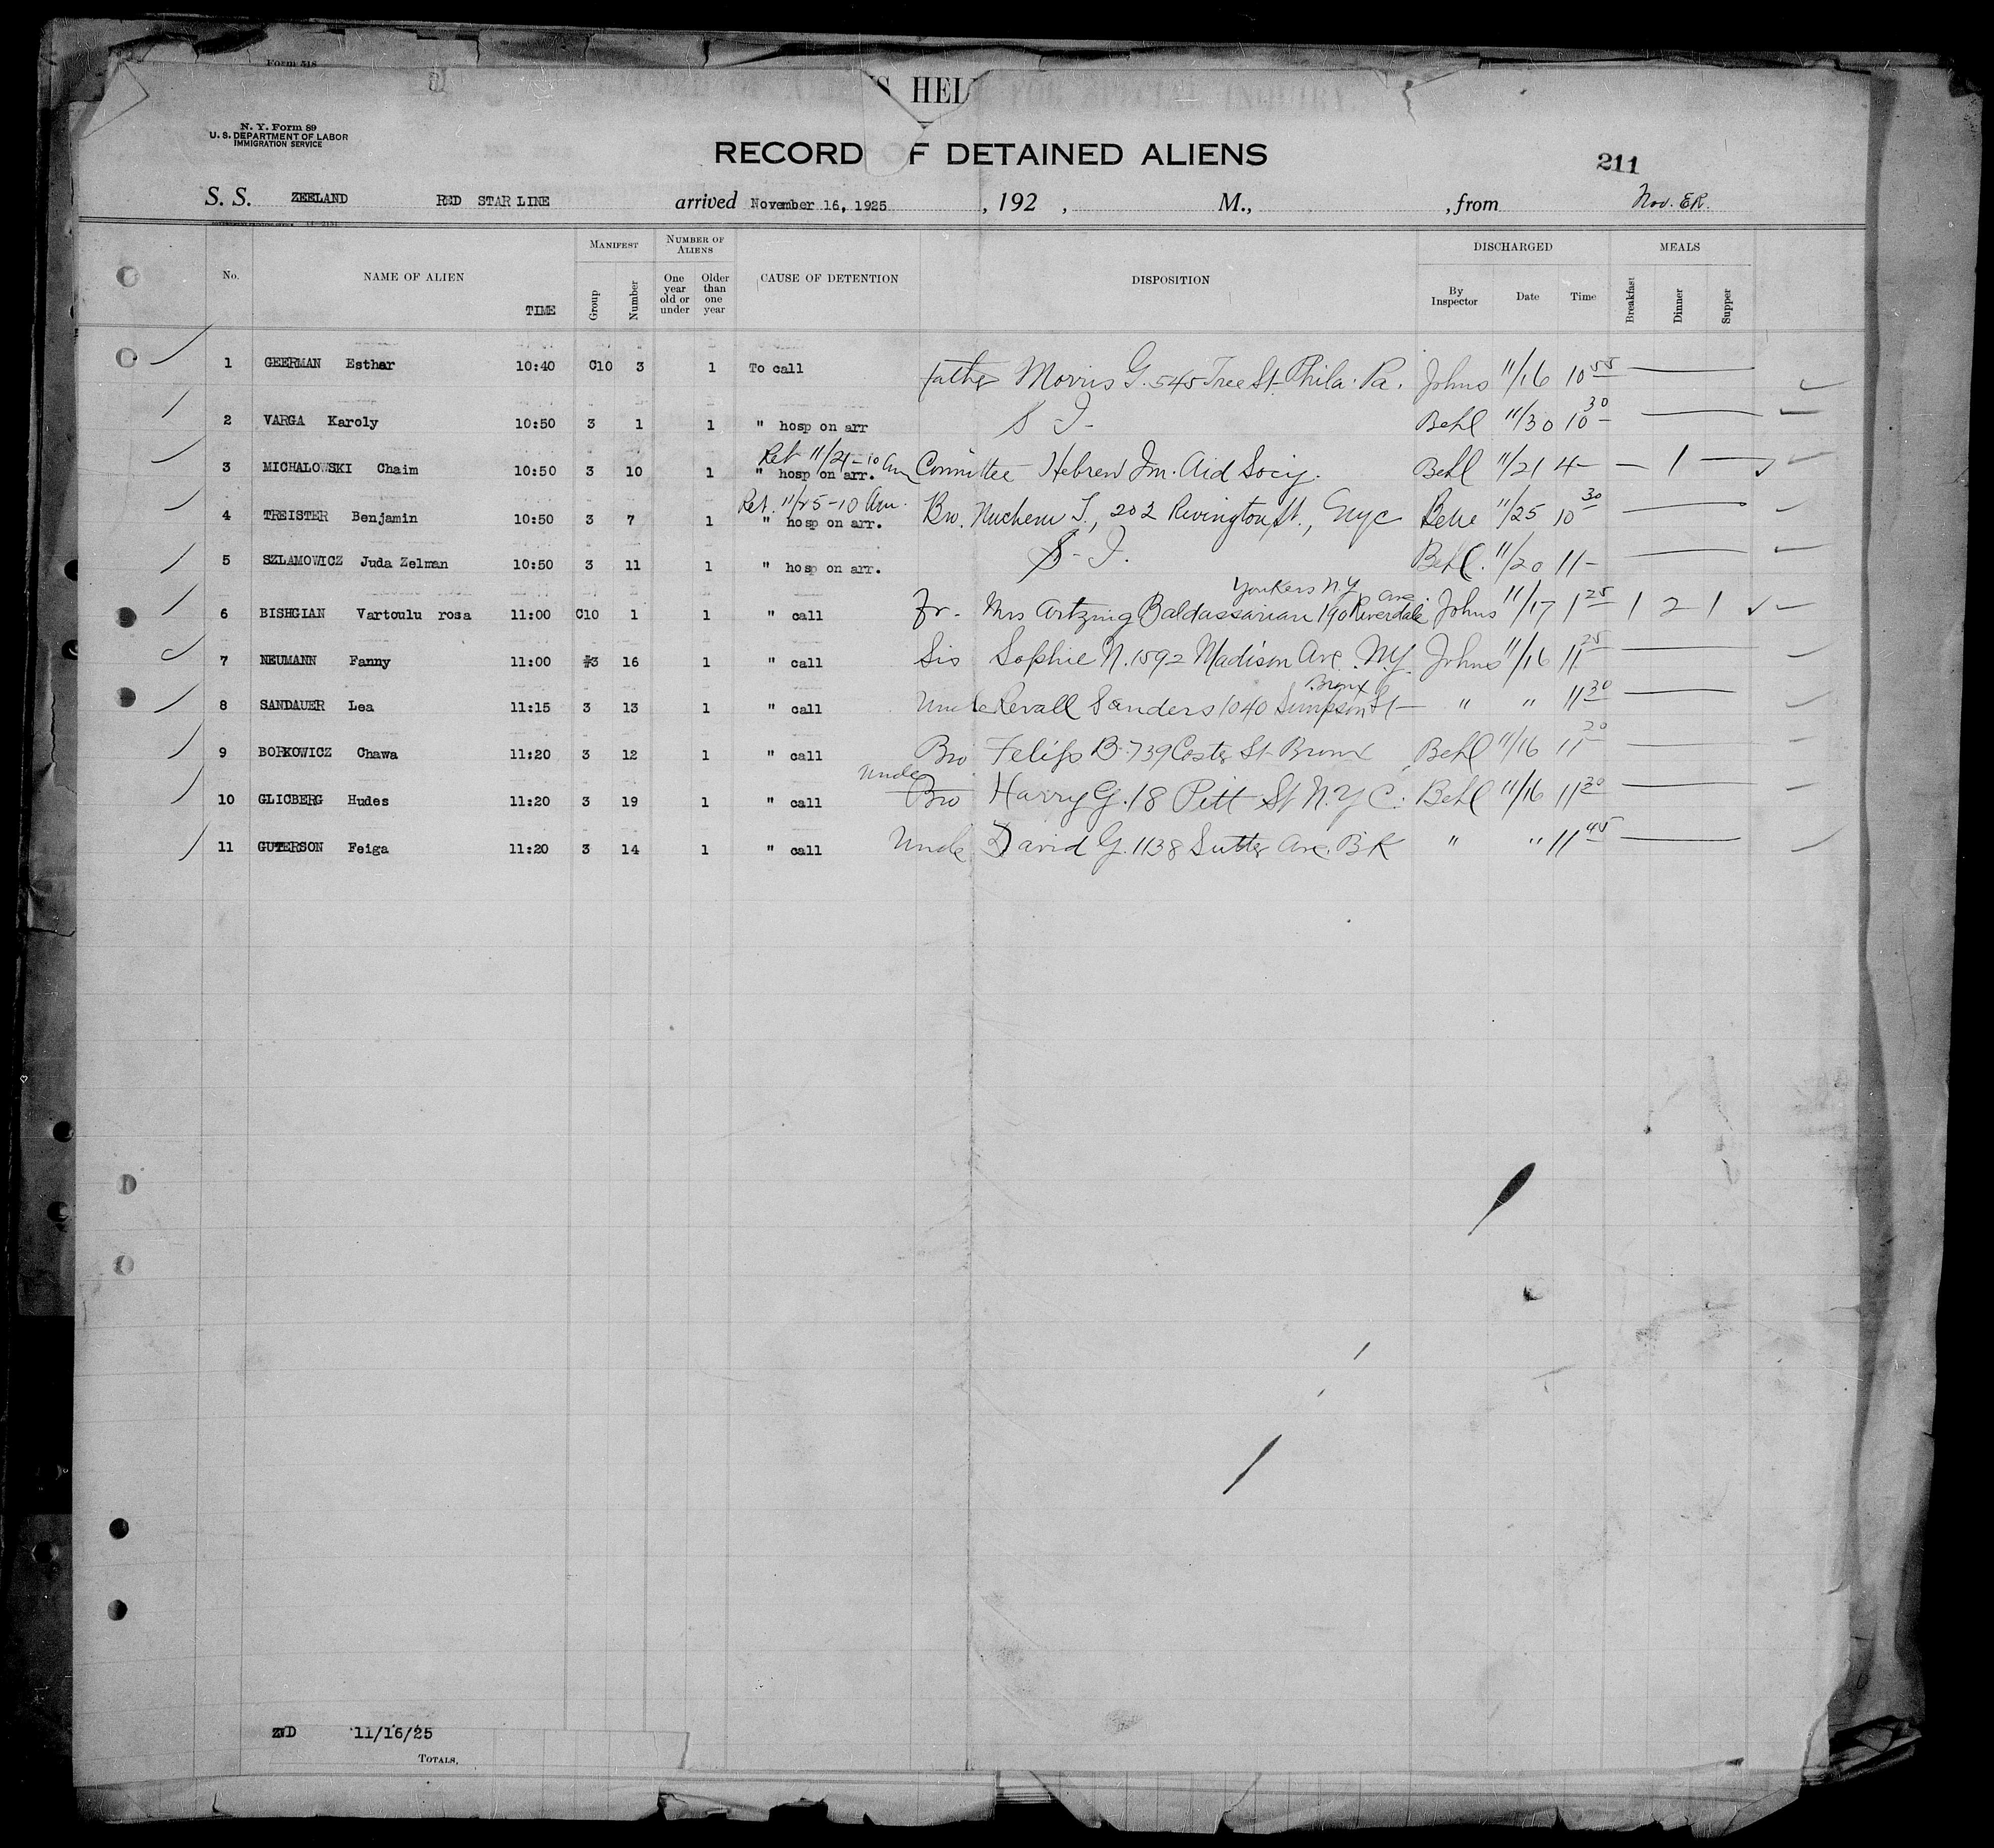 Form 518
S HEL
N. Y. Form 89
U. S. DEPARTMENT OF LABOR
IMMIGRATION SERVICE
RECORD OF DETAINED ALIENS
211
S. S. ZEELAND RED STAR LINE arrived November 16, 1925 , 192 , M., , from Nov. ER.
No. NAME OF ALIEN TIME MANIFEST Group Number NUMBER OF ALIENS One year old or under Older than one year CAUSE OF DETENTION DISPOSITION DISCHARGED By Inspector Date Time MEALS Breakfast Dinner Supper
1 GEERMAN Esther 10:40 C10 3 1 To call father Morris G. 545 Tree St. Phila. Pa. Johns 11/16 10 55
2 VARGA Karoly 10:50 3 1 1 " hosp on arr S I- Behl 11/30 10 30
Ret 11/21-10 Am
3 MICHALOWSKI Chaim 10:50 3 10 1 " hosp on arr. Committee Hebrew Im. Aid Sociy. Behl 11/21 4- — 1 —
Ret. 11/25-10 Am.
4 TREISTER Benjamin 10:50 3 7 1 " hosp on arr. Bro. Nuchem T., 202 Rivington St., Nyc 11/25 10 30
5 SZLAMOWICZ Juda Zelman 10:50 3 11 1 " hosp on arr. S-I. Behl. 11/20 11-
Yonkers N.Y
6 BISHGIAN Vartoulu rosa 11:00 C10 1 1 " call Fr. Mrs Artzing Baldassarian 190 Riverdale Ave. Johns 11/17 1 25 1 2 1
7 NEUMANN Fanny 11:00 #3 16 1 " call Sis Sophie N. 1592 Madison Ave. N.Y. Johns 11/16 11 25
Bronx
8 SANDAUER Lea 11:15 3 13 1 " call Uncle Sanders 1040 Simpson St- " " 11 30
9 BORKOWICZ Chawa 11:20 3 12 1 " call Bro B. 739 Coster St Bronx Behl 11/16 11 20
Uncle
10 GLICBERG Hudes 11:20 3 19 1 " call Bro Harry G. 18 Pitt St N.Y C. Behl 11/16 11 30
11 GUTERSON Feiga 11:20 3 14 1 " call Uncle David G. 1138 Sutter Ave. BK " " 11 45
11/16/25
TOTALS,